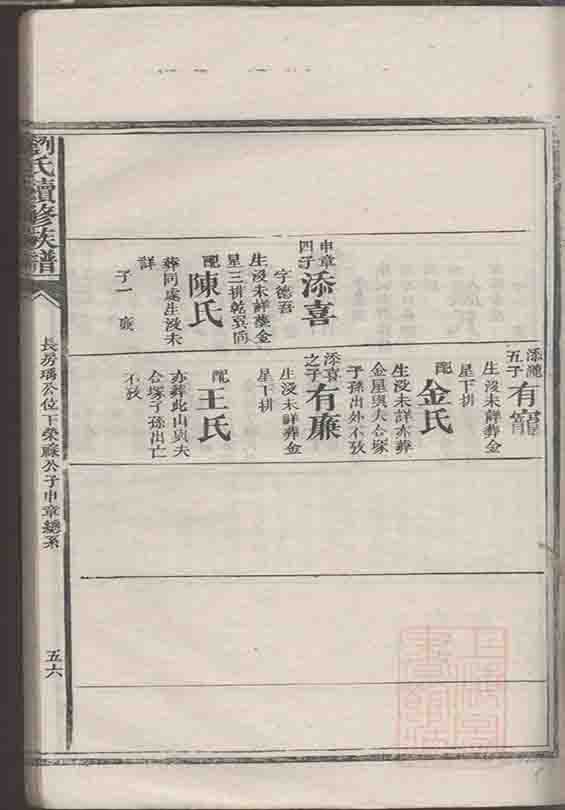 申章
四子
添喜
字德吾
生沒未詳葬金
星三排乾巽向
配
陳氏
葬同處生沒未
詳
子一 廉
添
五子
有寵
生沒未詳葬金
星下排
配
金氏
生沒未詳亦葬
金星與夫合塚
子孫出外不攷
添喜
之子
有廉
生沒未詳葬金
星下排
配
王氏
亦葬此山與夫
合塚子孫出亡
不攷
劉氏續修族譜
長房瑀公位下榮 公子申章總系
五六
上海圖書館藏